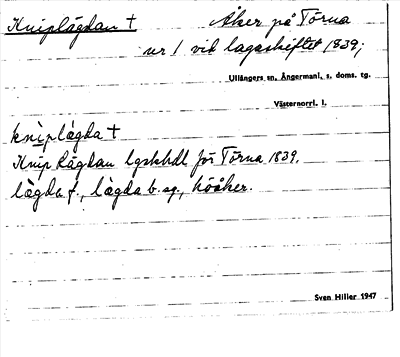 Kniplägdan † Åker på Törna
nr 1 vid lagaskiftet 1839;
Ullångers sn, Ångermanl. s. doms. tg.
Västernorrl. l.
kni̇plägda †
Knip Lägdan lgskhdl för Törna 1839.
lägda f., lägda b. sg., höåker.
Sven Hiller 1947